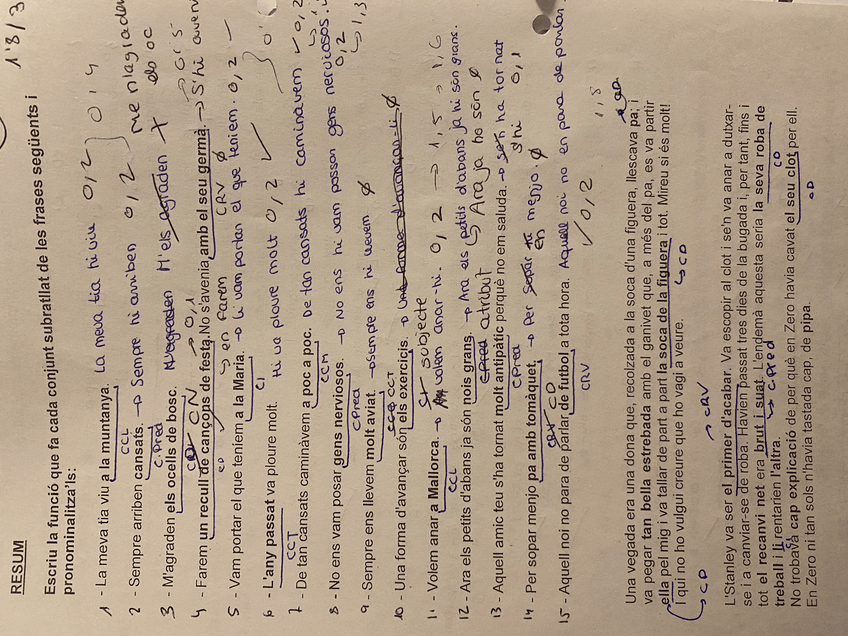 1'8/3
RESUM
Escriu la funció que fa cada conjunt subratllat de les frases següents i
pronominalitza'ls:
1 - La meva tia viu a la muntanya. La meva tia hi viu 0,2 } 0,4
CCL
2 - Sempre arriben cansats. → Sempre hi arriben 0,2
C.Pred
3 - M'agraden els ocells de bosc. M'els agraden X me n'agraden
4 - Farem un recull de cançons de festa. No s'avenia amb el seu germà. → S'hi
CN → 0,1 CRV
→ en farem
5 - Vam portar el que teníem a la Maria. → Li vam portar el que teníem. 0,2
CD CI
6 - L'any passat va ploure molt. Hi va ploure molt 0,2
CCT
7 - De tan cansats caminàvem a poc a poc. De tan cansats hi caminàvem 0,2
CCM
8 - No ens vam posar gens nerviosos. → No ens hi vam posar gens nerviosos.
CPred 0,2
9 - Sempre ens llevem molt aviat. → Sempre ens hi llevem Ø
CCT
10 - Una forma d'avançar són els exercicis. → Una forma d'avançar Ø
subjecte
11 - Volem anar a Mallorca. → volem anar-hi. 0,2 → 1,5 → 1,6
CCL
12 - Ara els petits d'abans ja són nois grans. → Ara els petits d'abans ja hi són grans.
CPred atribut Ara ja ho són Ø
13 - Aquell amic teu s'ha tornat molt antipàtic perquè no em saluda. → se n'ha tornat
CPred s'hi 0,1
14 - Per sopar menjo pa amb tomàquet. → Per sopar en menjo. Ø
CRV CD
15 - Aquell noi no para de parlar de futbol a tota hora. Aquell noi no en para de parlar.
CRV 0,2
1,8
Una vegada era una dona que, recolzada a la soca d'una figuera, llescava pa; i
CD
va pegar tan bella estrebada amb el ganivet que, a més del pa, es va partir
ella pel mig i va tallar de part a part la soca de la figuera i tot. Mireu si és molt!
CD
I qui no ho vulgui creure que ho vagi a veure.
CD CRV
L'Stanley va ser el primer d'acabar. Va escopir al clot i se'n va anar a dutxar-
se i a canviar-se de roba. Havien passat tres dies de la bugada i, per tant, fins i
tot el recanvi net era brut i suat. L'endemà aquesta seria la seva roba de
CPred CD
treball i li rentarien l'altra.
CI
No trobava cap explicació de per què en Zero havia cavat el seu clot per ell.
CD
En Zero ni tan sols n'havia tastada cap, de pipa.